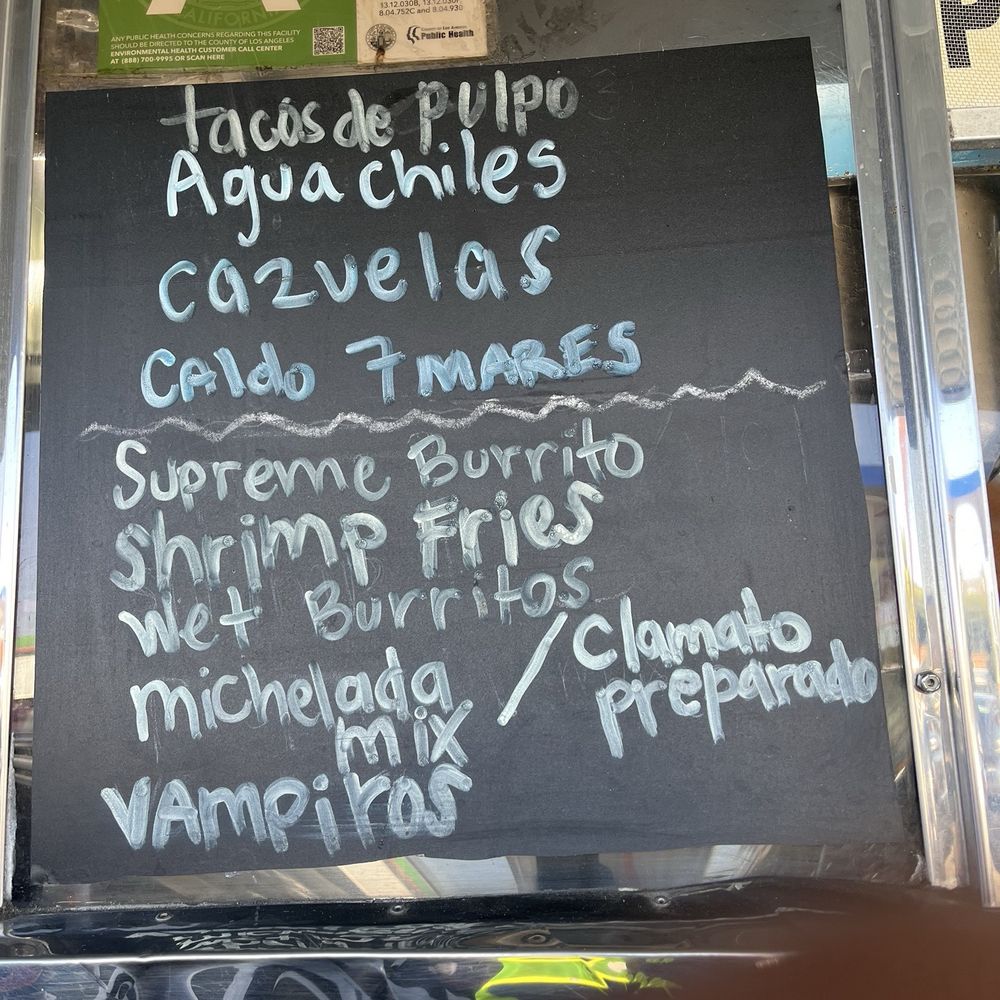 CALIFORNIA
ANY PUBLIC HEALTH CONCERNS REGARDING THIS FACILITY
SHOULD BE DIRECTED TO THE COUNTY OF LOS ANGELES
ENVIRONMENTAL HEALTH CUSTOMER CALL CENTER
AT (888) 700-9995 OR SCAN HERE
8.04.752C and 8.04.930
Public Health
P
tacos de pulpo
Aguachiles
cazuelas
CAldo 7 MARES
Supreme Burrito
Shrimp Fries
Wet Burritos
michelada mix / Clamato preparado
VAmpiros